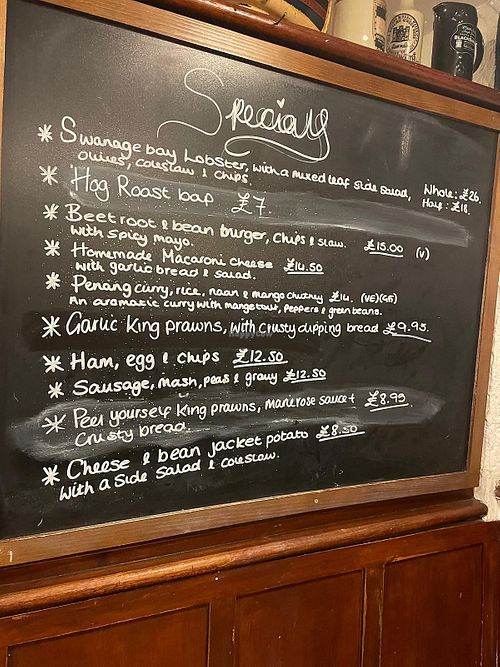 Specials
* Swanage bay Lobster, with a mixed leaf side salad, Whole: £26.
olives, coleslaw & chips Half: £18.
* Hog Roast bap £7.
* Beetroot & bean burger, chips & slaw. £15.00 (V)
with spicy mayo.
* Homemade Macaroni cheese £14.50
with garlic bread & salad.
* Penang curry, rice, naan & mango chutney £14. (VE)(GF)
An aromatic curry with mangetout, peppers & green beans.
* Garlic King prawns, with crusty dipping bread £9.95.
* Ham, egg & chips £12.50
* Sausage, mash, peas & gravy £12.50
* Peel yourself King prawns, marierose sauce + £8.95.
crusty bread.
* Cheese & bean jacket potato £8.50
with a side salad & coleslaw.